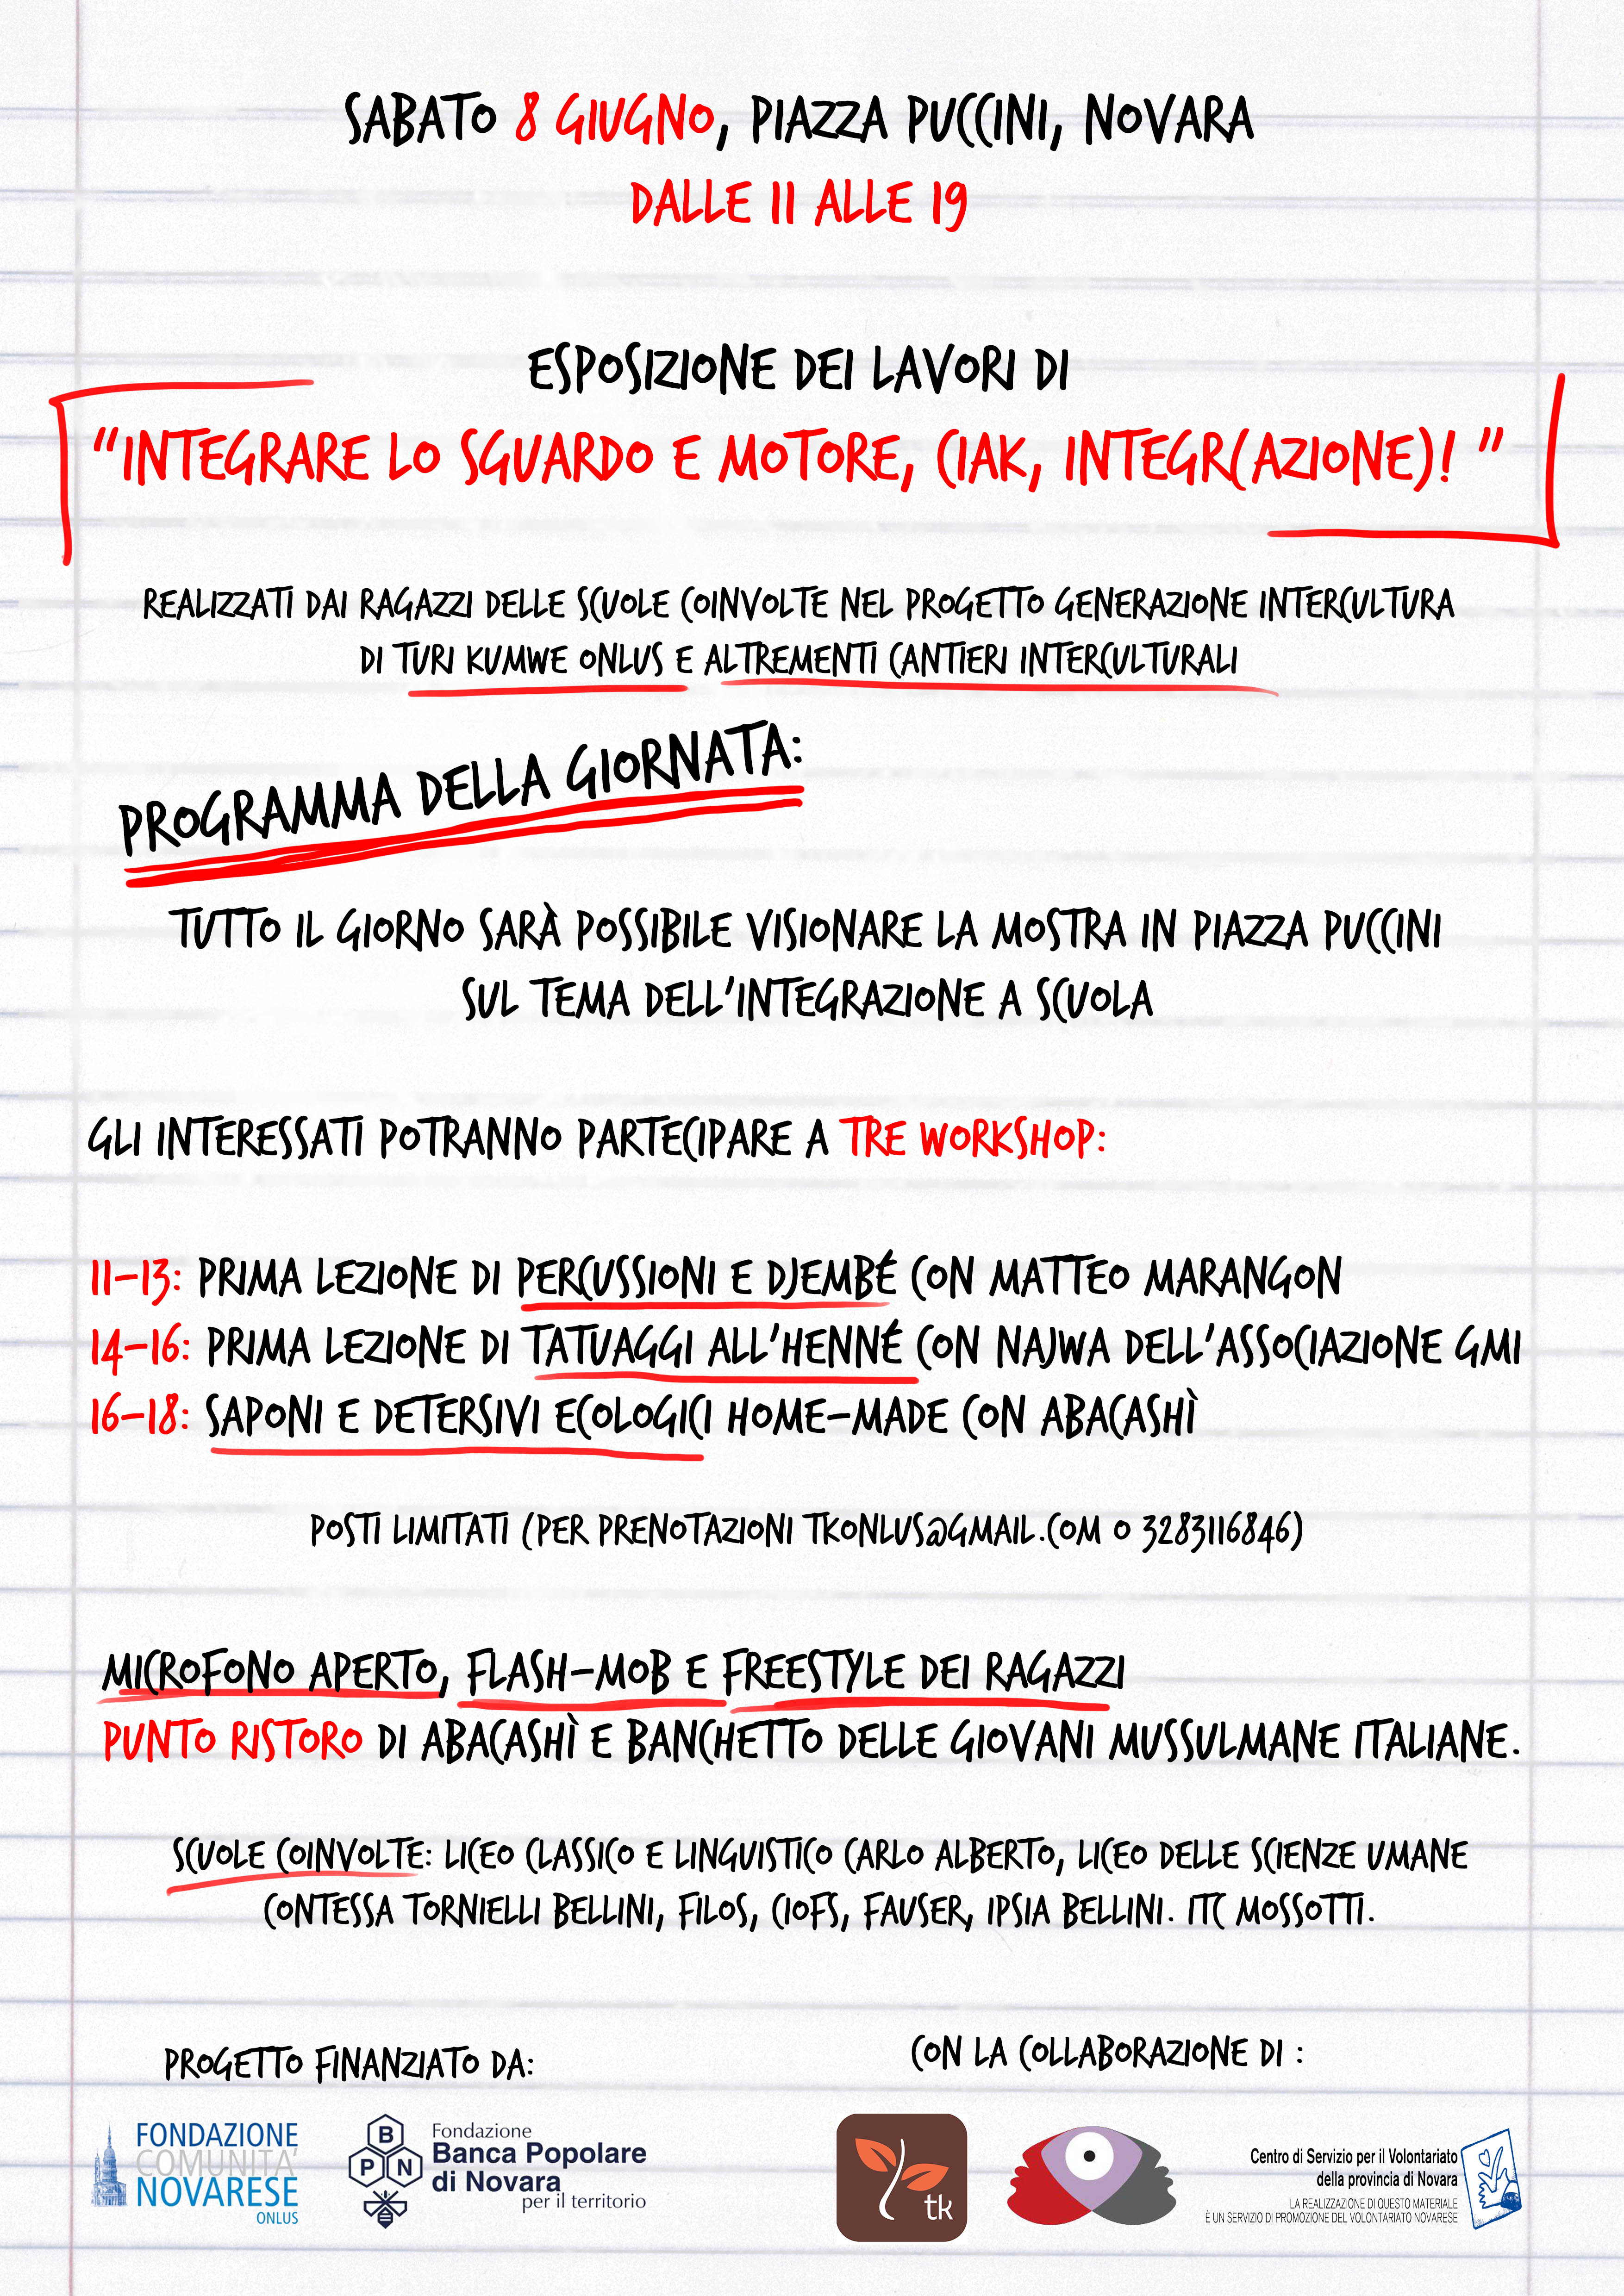 SABATO 8 GIUGNO, PIAZZA PUCCINI, NOVARA
DALLE 11 ALLE 19
ESPOSIZIONE DEI LAVORI DI
“INTEGRARE LO SGUARDO E MOTORE, CIAK, INTEGR(AZIONE)! ”
REALIZZATI DAI RAGAZZI DELLE SCUOLE COINVOLTE NEL PROGETTO GENERAZIONE INTERCULTURA
DI TURI KUMWE ONLUS E ALTREMENTI CANTIERI INTERCULTURALI
PROGRAMMA DELLA GIORNATA:
TUTTO IL GIORNO SARÀ POSSIBILE VISIONARE LA MOSTRA IN PIAZZA PUCCINI
SUL TEMA DELL'INTEGRAZIONE A SCUOLA
GLI INTERESSATI POTRANNO PARTECIPARE A TRE WORKSHOP:
11-13: PRIMA LEZIONE DI PERCUSSIONI E DJEMBÉ CON MATTEO MARANGON
14-16: PRIMA LEZIONE DI TATUAGGI ALL'HENNÉ CON NAJWA DELL'ASSOCIAZIONE GMI
16-18: SAPONI E DETERSIVI ECOLOGICI HOME-MADE CON ABACASHÌ
POSTI LIMITATI (PER PRENOTAZIONI TKONLUS@GMAIL.COM O 3283116846)
MICROFONO APERTO, FLASH-MOB E FREESTYLE DEI RAGAZZI
PUNTO RISTORO DI ABACASHÌ E BANCHETTO DELLE GIOVANI MUSSULMANE ITALIANE.
SCUOLE COINVOLTE: LICEO CLASSICO E LINGUISTICO CARLO ALBERTO, LICEO DELLE SCIENZE UMANE
CONTESSA TORNIELLI BELLINI, FILOS, CIOFS, FAUSER, IPSIA BELLINI. ITC MOSSOTTI.
PROGETTO FINANZIATO DA:
CON LA COLLABORAZIONE DI :
FONDAZIONE
COMUNITA'
NOVARESE
ONLUS
B
P N
Fondazione
Banca Popolare
di Novara
per il territorio
tk
Centro di Servizio per il Volontariato
della provincia di Novara
LA REALIZZAZIONE DI QUESTO MATERIALE
È UN SERVIZIO DI PROMOZIONE DEL VOLONTARIATO NOVARESE